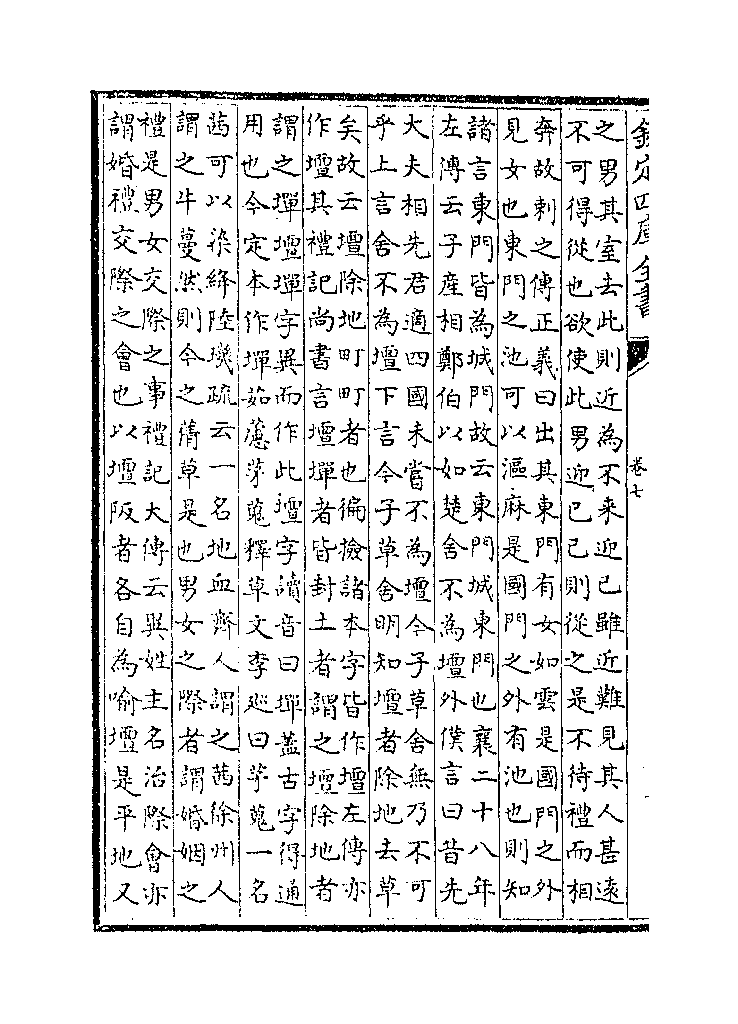 欽定四庫全書
卷七
之男其室去此則近為不来迎已雖近難見其人甚逺
不可得從也欲使此男迎已已則從之是不待禮而相
奔故刺之傳正義曰出其東門有女如雲是國門之外
見女也東門之池可以漚麻是國門之外有池也則知
諸言東門皆為城門故云東門城東門也襄二十八年
左傳云子産相鄭伯以如楚舍不為壇外僕言曰昔先
大夫相先君適四國未嘗不為壇今子草舍無乃不可
乎上言舍不為壇下言今子草舍明知壇者除地去草
矣故云壇除地町町者也徧檢諸本字皆作壇左傳亦
作壇其禮記尚書言壇墠者皆封土者謂之壇除地者
謂之墠壇墠字異而作此壇字讀音曰墠蓋古字得通
用也今定本作墠茹藘茅蒐釋草文李廵曰茅蒐一名
茜可以染絳陸璣疏云一名地血齊人謂之茜徐州人
謂之牛蔓然則今之蒨草是也男女之際者謂婚姻之
禮是男女交際之事禮記大傳云異姓主名治際會亦
謂婚禮交際之會也以壇阪者各自為喻壇是平地又